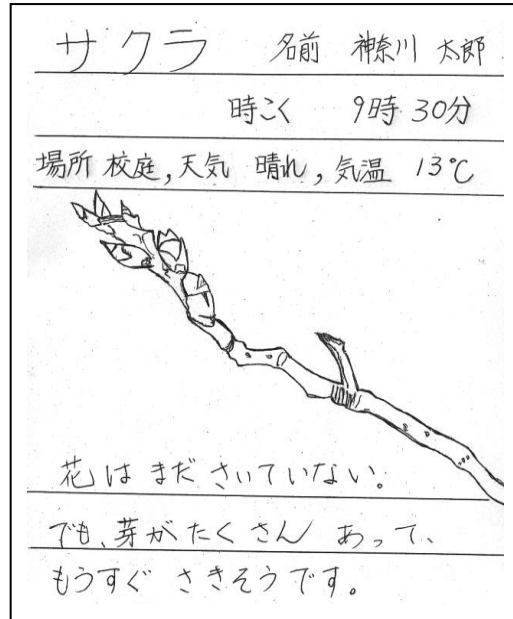 サクラ 名前 神奈川 太郎
時こく 9時30分
場所 校庭,天気 晴れ,気温 13℃
花は まだ さいていない。
でも、芽がたくさん あって、
もうすぐ さきそうです。